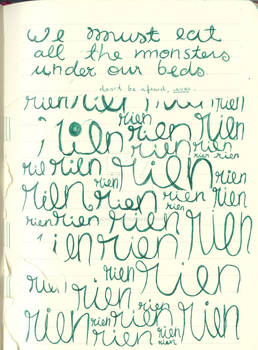 We must eat
all the monsters
under our beds
don't be afraid, ever.
rien rien rien
rien rien rien
rien rien rien rien
rien rien rien rien rien
rien rien rien rien
rien rien rien rien rien
rien rien rien rien
rien rien rien
rien rien rien
rien rien rien rien rien
rien rien